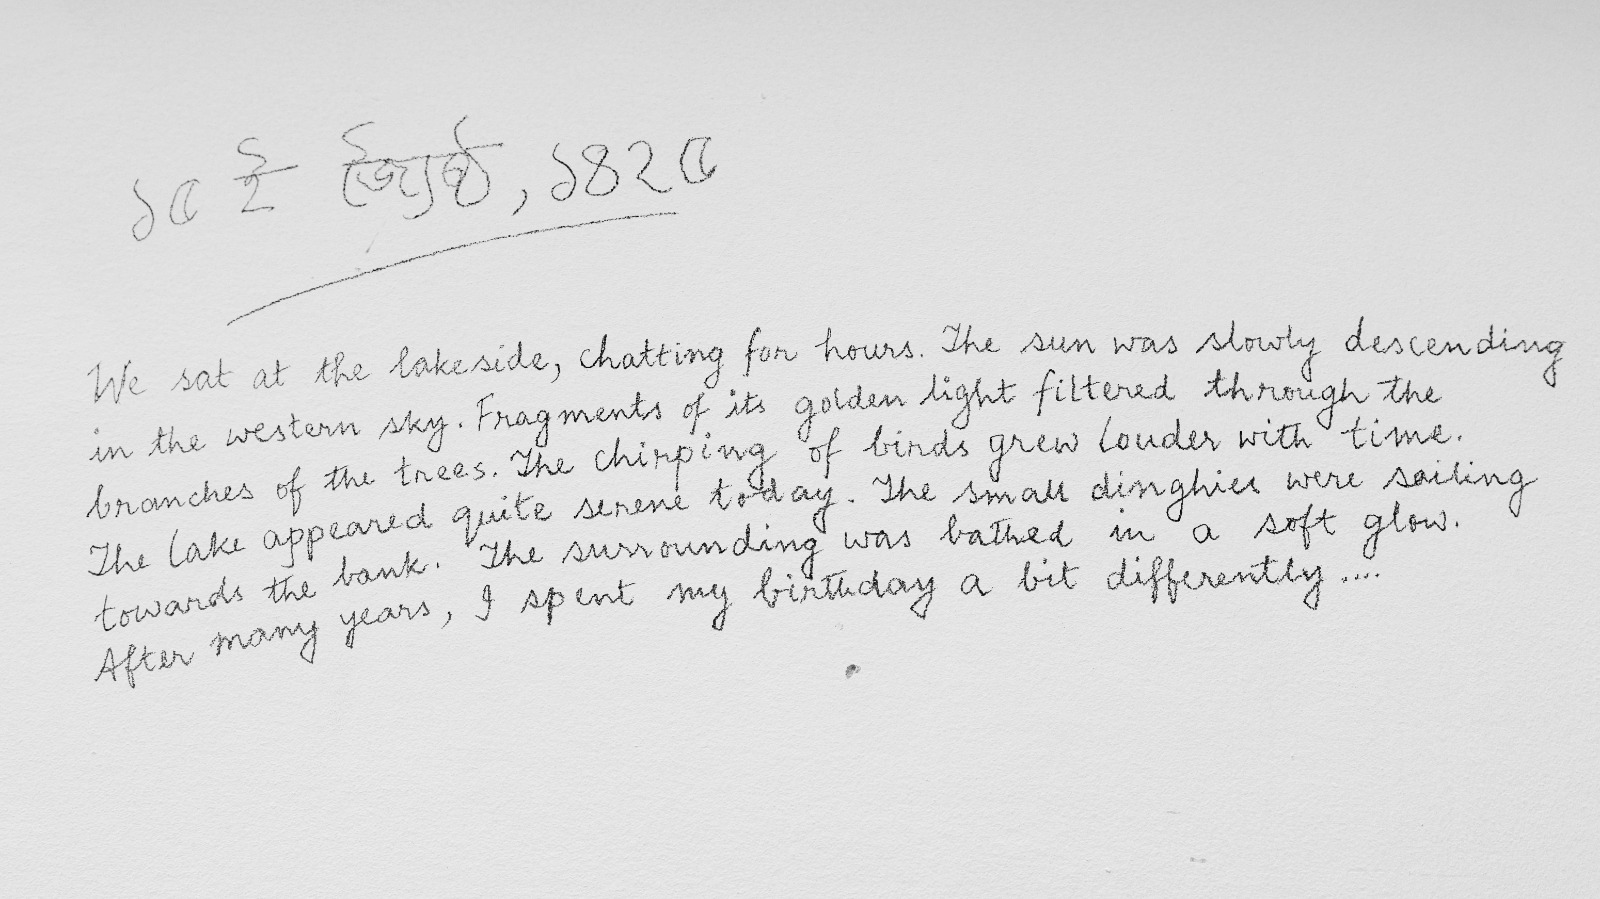 ১৫ ই জ্যৈষ্ঠ, ১৪২৫
We sat at the lakeside, chatting for hours. The sun was slowly descending
in the western sky. Fragments of its golden light filtered through the
branches of the trees. The chirping of birds grew louder with time.
The lake appeared quite serene today. The small dinghies were sailing
towards the bank. The surrounding was bathed in a soft glow.
After many years, I spent my birthday a bit differently....